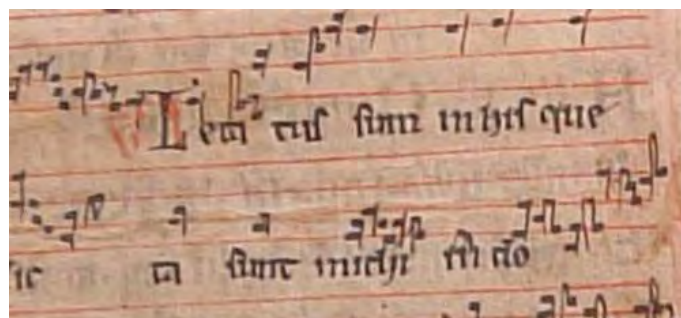 V Leta tus sum in his que
ic ta sunt michi in do